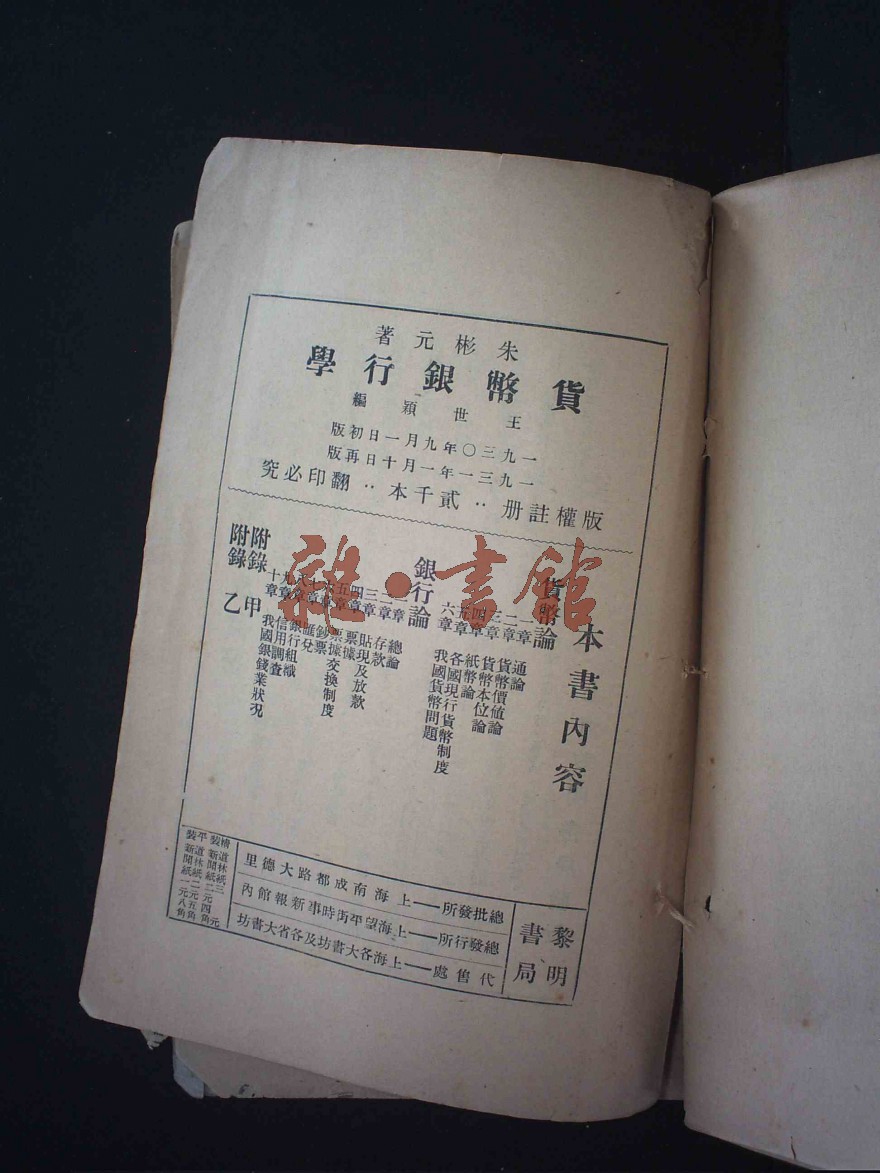 朱彬元著
貨幣銀行學
王世穎編
一九三〇年九月一日初版
一九三一年一月十日再版
版權註册‥貳千本‥翻印必究
本書內容
貨幣論
一章 通論
二章 貨幣價值論
三章 貨幣本位論
四章 紙幣論
五章 各國現行貨幣制度
六章 我國貨幣問題
銀行論
一章 總論
二章 存款
三章 貼現及放款
四章 票據
五章 票據交換制度
六章 鈔票
七章 匯兌
八章 銀行組織
九章 信用調查
十章 我國銀錢業狀況
附錄甲
附錄乙
黎明書局
總批發所——上海南成都路大德里
總發行所——上海望平街時事新報館內
代售處——上海各大書坊及各省大書坊
精裝 道林紙三元
新聞紙二元四角
平裝 道林紙二元五角
新聞紙一元八角
雜·書館